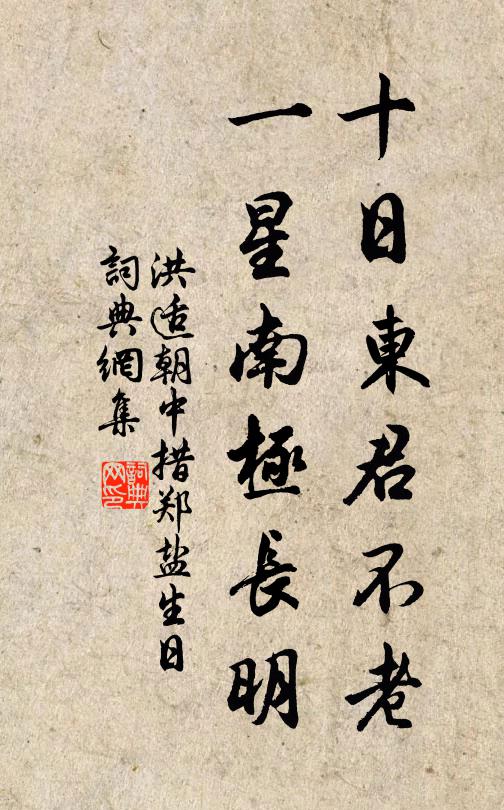 十日東君不老
一星南極長明
洪适朝中措郑盐生日
詞典網集
詞典網印